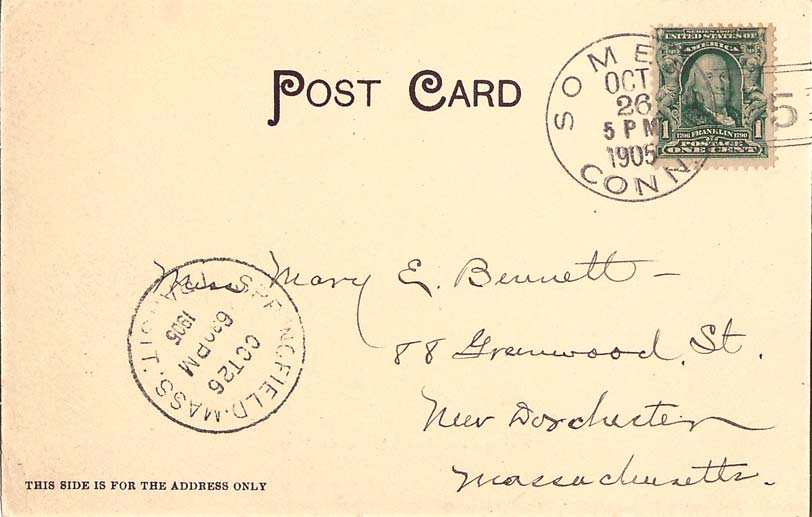 POST CARD
SOME
OCT
26
5 PM
1905
CONN.
5
SERIES 1902
UNITED STATES OF
AMERICA
1 1706 FRANKLIN 1790 1
POSTAGE
ONE CENT
Miss Mary E. Bennett -
88 Greenwood. St.
New Dorchester
Massachusetts.
SPRINGFIELD. MASS.
OCT 26
630 PM
1905
THIS SIDE IS FOR THE ADDRESS ONLY